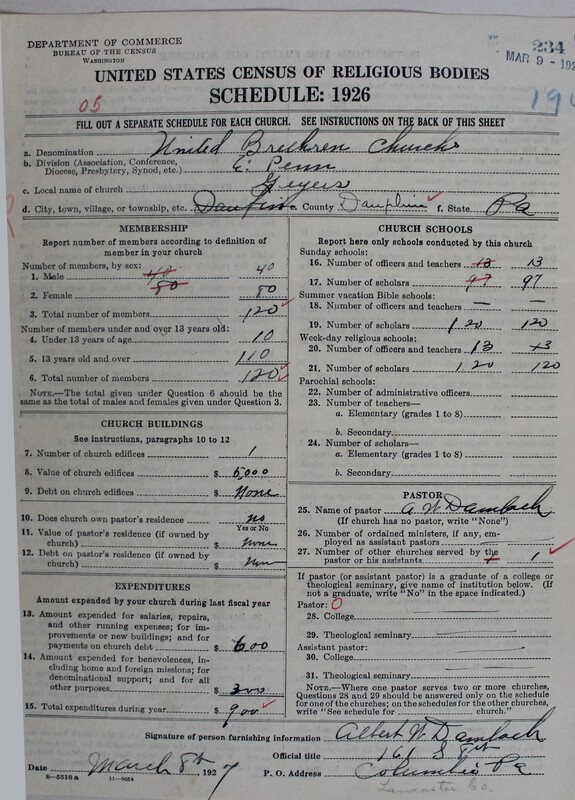 DEPARTMENT OF COMMERCE
BUREAU OF THE CENSUS
WASHINGTON
234
MAR 9 - 192
UNITED STATES CENSUS OF RELIGIOUS BODIES
SCHEDULE: 1926
05
FILL OUT A SEPARATE SCHEDULE FOR EACH CHURCH. SEE INSTRUCTIONS ON THE BACK OF THIS SHEET
a. Denomination United Brethren Church
b. Division (Association, Conference, Diocese, Presbytery, Synod, etc.) E. Penn
c. Local name of church Geyers
d. City, town, village, or township, etc. e. County Dauphin f. State Pa
MEMBERSHIP
Report number of members according to definition of member in your church
Number of members, by sex:
1. Male 40 40
80
2. Female 80
3. Total number of members 120
Number of members under and over 13 years old:
4. Under 13 years of age 10
5. 13 years old and over 110
6. Total number of members 120
NOTE.—The total given under Question 6 should be the same as the total of males and females given under Question 3.
CHURCH BUILDINGS
See instructions, paragraphs 10 to 12
7. Number of church edifices 1
8. Value of church edifices $ 5,000
9. Debt on church edifices $ None
10. Does church own pastor's residence no
Yes or No
11. Value of pastor's residence (if owned by church) $ None
12. Debt on pastor's residence (if owned by church) $ None
EXPENDITURES
Amount expended by your church during last fiscal year
13. Amount expended for salaries, repairs, and other running expenses; for improvements or new buildings; and for payments on church debt $ 600
14. Amount expended for benevolences, including home and foreign missions; for denominational support; and for all other purposes $ 300
15. Total expenditures during year $ 900
CHURCH SCHOOLS
Report here only schools conducted by this church
Sunday schools:
16. Number of officers and teachers 13 13
17. Number of scholars 97 97
Summer vacation Bible schools:
18. Number of officers and teachers — —
19. Number of scholars 120 120
Week-day religious schools:
20. Number of officers and teachers 13 13
21. Number of scholars 120 120
Parochial schools:
22. Number of administrative officers
23. Number of teachers—
a. Elementary (grades 1 to 8)
b. Secondary
24. Number of scholars—
a. Elementary (grades 1 to 8)
b. Secondary
PASTOR
25. Name of pastor A. W. Dambach
(If church has no pastor, write "None")
26. Number of ordained ministers, if any, employed as assistant pastors
27. Number of other churches served by the pastor or his assistants 1
If pastor (or assistant pastor) is a graduate of a college or theological seminary, give name of institution below. (If not a graduate, write "No" in the space indicated.)
Pastor: O
28. College
29. Theological seminary
Assistant pastor:
30. College
31. Theological seminary
NOTE.—Where one pastor serves two or more churches, Questions 28 and 29 should be answered only on the schedule for one of the churches; on the schedules for the other churches, write "See schedule for church."
Signature of person furnishing information Albert W. Dambach
Official title 161 S 8th
Date March 8th 1927 P. O. Address Columbia Pa
8-5518a 11-9684
Lancaster Co.